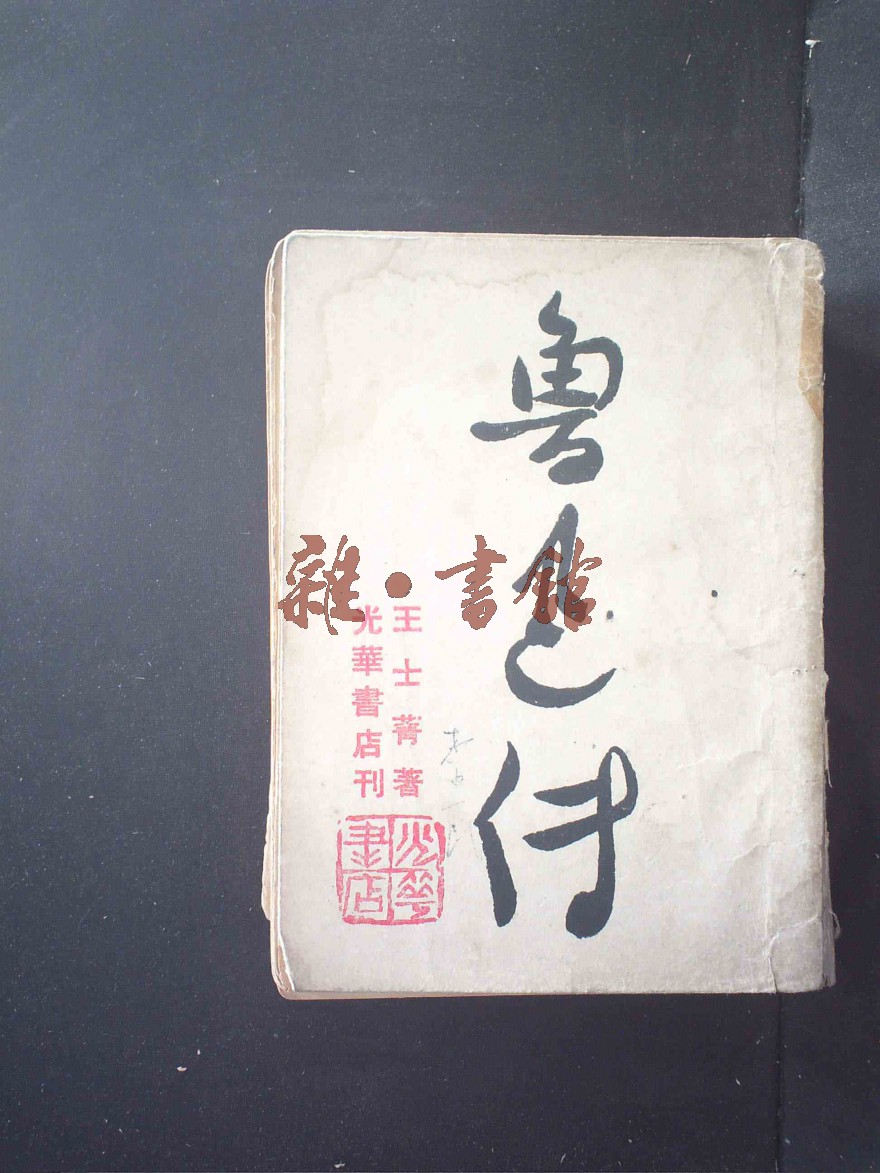 魯迅傳
王士菁著
光華書店刊
光華書店
雜·書館